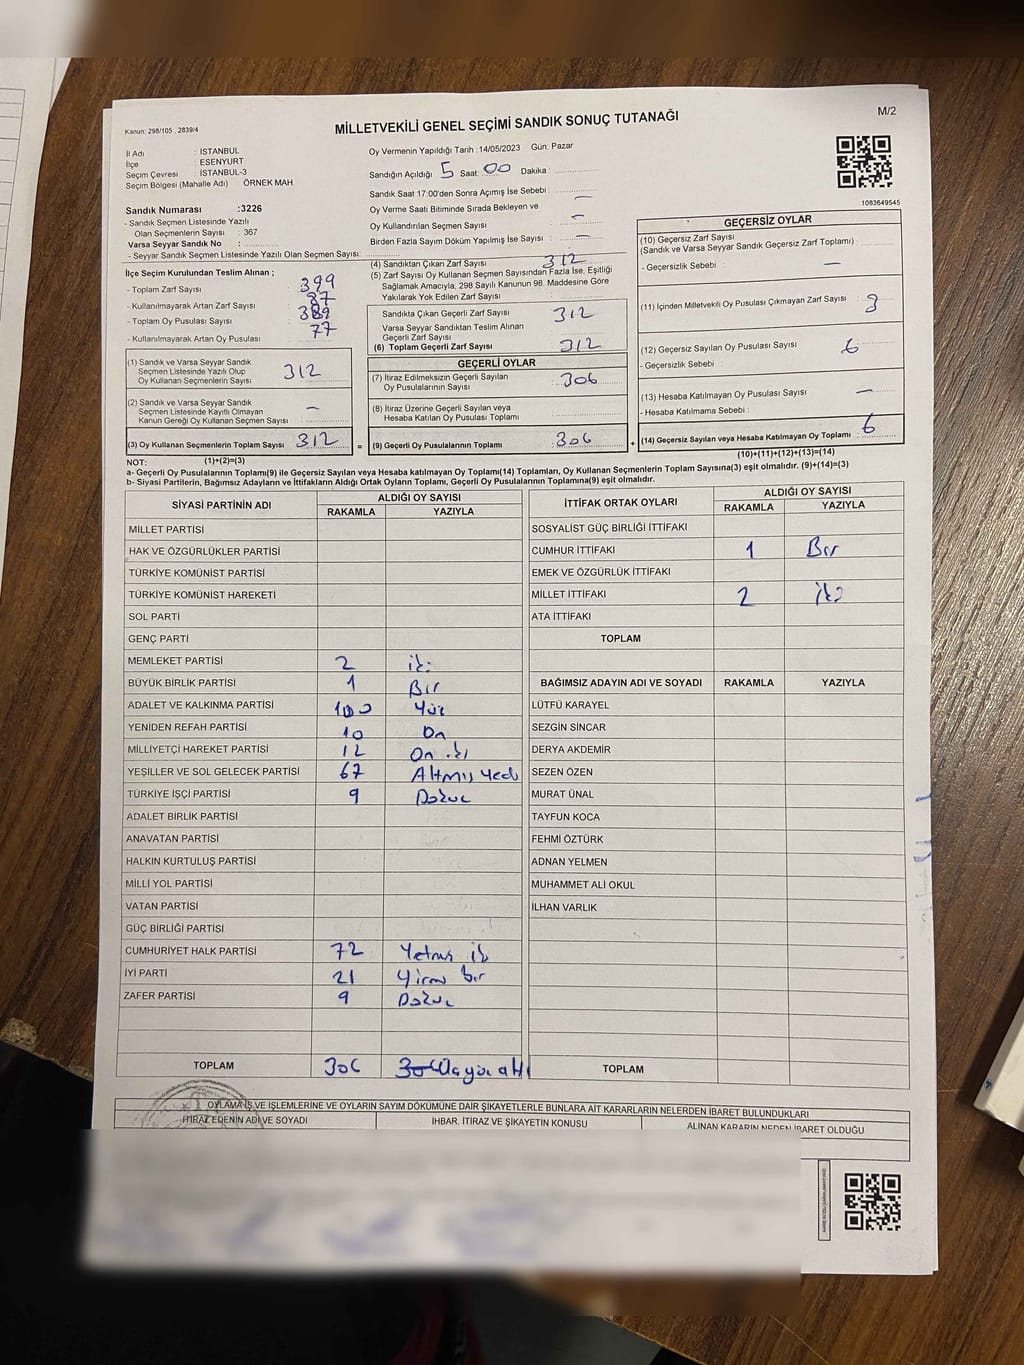 Kanun: 298/105 , 2839/4
MİLLETVEKİLİ GENEL SEÇİMİ SANDIK SONUÇ TUTANAĞI
M/2
İl Adı : İSTANBUL
İlçe : ESENYURT
Seçim Çevresi : İSTANBUL-3
Seçim Bölgesi (Mahalle Adı) ÖRNEK MAH.
Oy Vermenin Yapıldığı Tarih :14/05/2023 Gün: Pazar
Sandığın Açıldığı 5 Saat: 00 Dakika :
Sandık Saat 17:00'den Sonra Açımış İse Sebebi : —
Oy Verme Saati Bitiminde Sırada Bekleyen ve
Oy Kullandırılan Seçmen Sayısı : —
Birden Fazla Sayım Döküm Yapılmış İse Sayısı : —
1083649545
Sandık Numarası :3226
- Sandık Seçmen Listesinde Yazılı
Olan Seçmenlerin Sayısı : 367
Varsa Seyyar Sandık No :
- Seyyar Sandık Seçmen Listesinde Yazılı Olan Seçmen Sayısı:
İlçe Seçim Kurulundan Teslim Alınan ;
- Toplam Zarf Sayısı : 399
- Kullanılmayarak Artan Zarf Sayısı : 87
- Toplam Oy Pusulası Sayısı : 389
- Kullanılmayarak Artan Oy Pusulası : 77
(1) Sandık ve Varsa Seyyar Sandık
Seçmen Listesinde Yazılı Olup
Oy Kullanan Seçmenlerin Sayısı : 312
(2) Sandık ve Varsa Seyyar Sandık
Seçmen Listesinde Kayıtlı Olmayan
Kanun Gereği Oy Kullanan Seçmen Sayısı : —
(3) Oy Kullanan Seçmenlerin Toplam Sayısı : 312
(1)+(2)=(3)
(4) Sandıktan Çıkan Zarf Sayısı : 312
(5) Zarf Sayısı Oy Kullanan Seçmen Sayısından Fazla İse, Eşitliği
Sağlamak Amacıyla; 298 Sayılı Kanunun 98. Maddesine Göre
Yakılarak Yok Edilen Zarf Sayısı :
Sandıkta Çıkan Geçerli Zarf Sayısı : 312
Varsa Seyyar Sandıktan Teslim Alınan
Geçerli Zarf Sayısı :
(6) Toplam Geçerli Zarf Sayısı : 312
GEÇERLİ OYLAR
(7) İtiraz Edilmeksizin Geçerli Sayılan
Oy Pusulalarının Sayısı : 306
(8) İtiraz Üzerine Geçerli Sayılan veya
Hesaba Katılan Oy Pusulası Toplamı :
= (9) Geçerli Oy Pusulalarının Toplamı : 306
GEÇERSİZ OYLAR
(10) Geçersiz Zarf Sayısı
(Sandık ve Varsa Seyyar Sandık Geçersiz Zarf Toplamı) :
- Geçersizlik Sebebi : —
(11) İçinden Milletvekili Oy Pusulası Çıkmayan Zarf Sayısı :
(12) Geçersiz Sayılan Oy Pusulası Sayısı : 6
- Geçersizlik Sebebi :
(13) Hesaba Katılmayan Oy Pusulası Sayısı : —
- Hesaba Katılmama Sebebi :
+ (14) Geçersiz Sayılan veya Hesaba Katılmayan Oy Toplamı : 6
(10)+(11)+(12)+(13)=(14)
NOT:
a- Geçerli Oy Pusulalarının Toplamı(9) ile Geçersiz Sayılan veya Hesaba katılmayan Oy Toplamı(14) Toplamları, Oy Kullanan Seçmenlerin Toplam Sayısına(3) eşit olmalıdır. (9)+(14)=(3)
b- Siyasi Partilerin, Bağımsız Adayların ve İttifakların Aldığı Ortak Oyların Toplamı, Geçerli Oy Pusulalarının Toplamına(9) eşit olmalıdır.
SİYASİ PARTİNİN ADI ALDIĞI OY SAYISI
RAKAMLA YAZIYLA
MİLLET PARTİSİ
HAK VE ÖZGÜRLÜKLER PARTİSİ
TÜRKİYE KOMÜNİST PARTİSİ
TÜRKİYE KOMÜNİST HAREKETİ
SOL PARTİ
GENÇ PARTİ
MEMLEKET PARTİSİ 2 iki
BÜYÜK BİRLİK PARTİSİ 1 Bir
ADALET VE KALKINMA PARTİSİ 100 Yüz
YENİDEN REFAH PARTİSİ 10 On
MİLLİYETÇİ HAREKET PARTİSİ 12 On iki
YEŞİLLER VE SOL GELECEK PARTİSİ 67 Altmış Yedi
TÜRKİYE İŞÇİ PARTİSİ 9 Dokuz
ADALET BİRLİK PARTİSİ
ANAVATAN PARTİSİ
HALKIN KURTULUŞ PARTİSİ
MİLLİ YOL PARTİSİ
VATAN PARTİSİ
GÜÇ BİRLİĞİ PARTİSİ
CUMHURİYET HALK PARTİSİ 72 Yetmiş iki
İYİ PARTİ 21 Yirmi bir
ZAFER PARTİSİ 9 Dokuz
TOPLAM 306 30 Üçyüz altı
İTTİFAK ORTAK OYLARI ALDIĞI OY SAYISI
RAKAMLA YAZIYLA
SOSYALİST GÜÇ BİRLİĞİ İTTİFAKI
CUMHUR İTTİFAKI 1 Bir
EMEK VE ÖZGÜRLÜK İTTİFAKI
MİLLET İTTİFAKI 2 iki
ATA İTTİFAKI
TOPLAM
BAĞIMSIZ ADAYIN ADI VE SOYADI RAKAMLA YAZIYLA
LÜTFÜ KARAYEL
SEZGİN SİNCAR
DERYA AKDEMİR
SEZEN ÖZEN
MURAT ÜNAL
TAYFUN KOCA
FEHMİ ÖZTÜRK
ADNAN YELMEN
MUHAMMET ALİ OKUL
İLHAN VARLIK
TOPLAM
OYLAMA İŞ VE İŞLEMLERİNE VE OYLARIN SAYIM DÖKÜMÜNE DAİR ŞİKAYETLERLE BUNLARA AİT KARARLARIN NELERDEN İBARET BULUNDUKLARI
İTİRAZ EDENİN ADI VE SOYADI İHBAR, İTİRAZ VE ŞİKAYETİN KONUSU ALINAN KARARIN NEDEN İBARET OLDUĞU